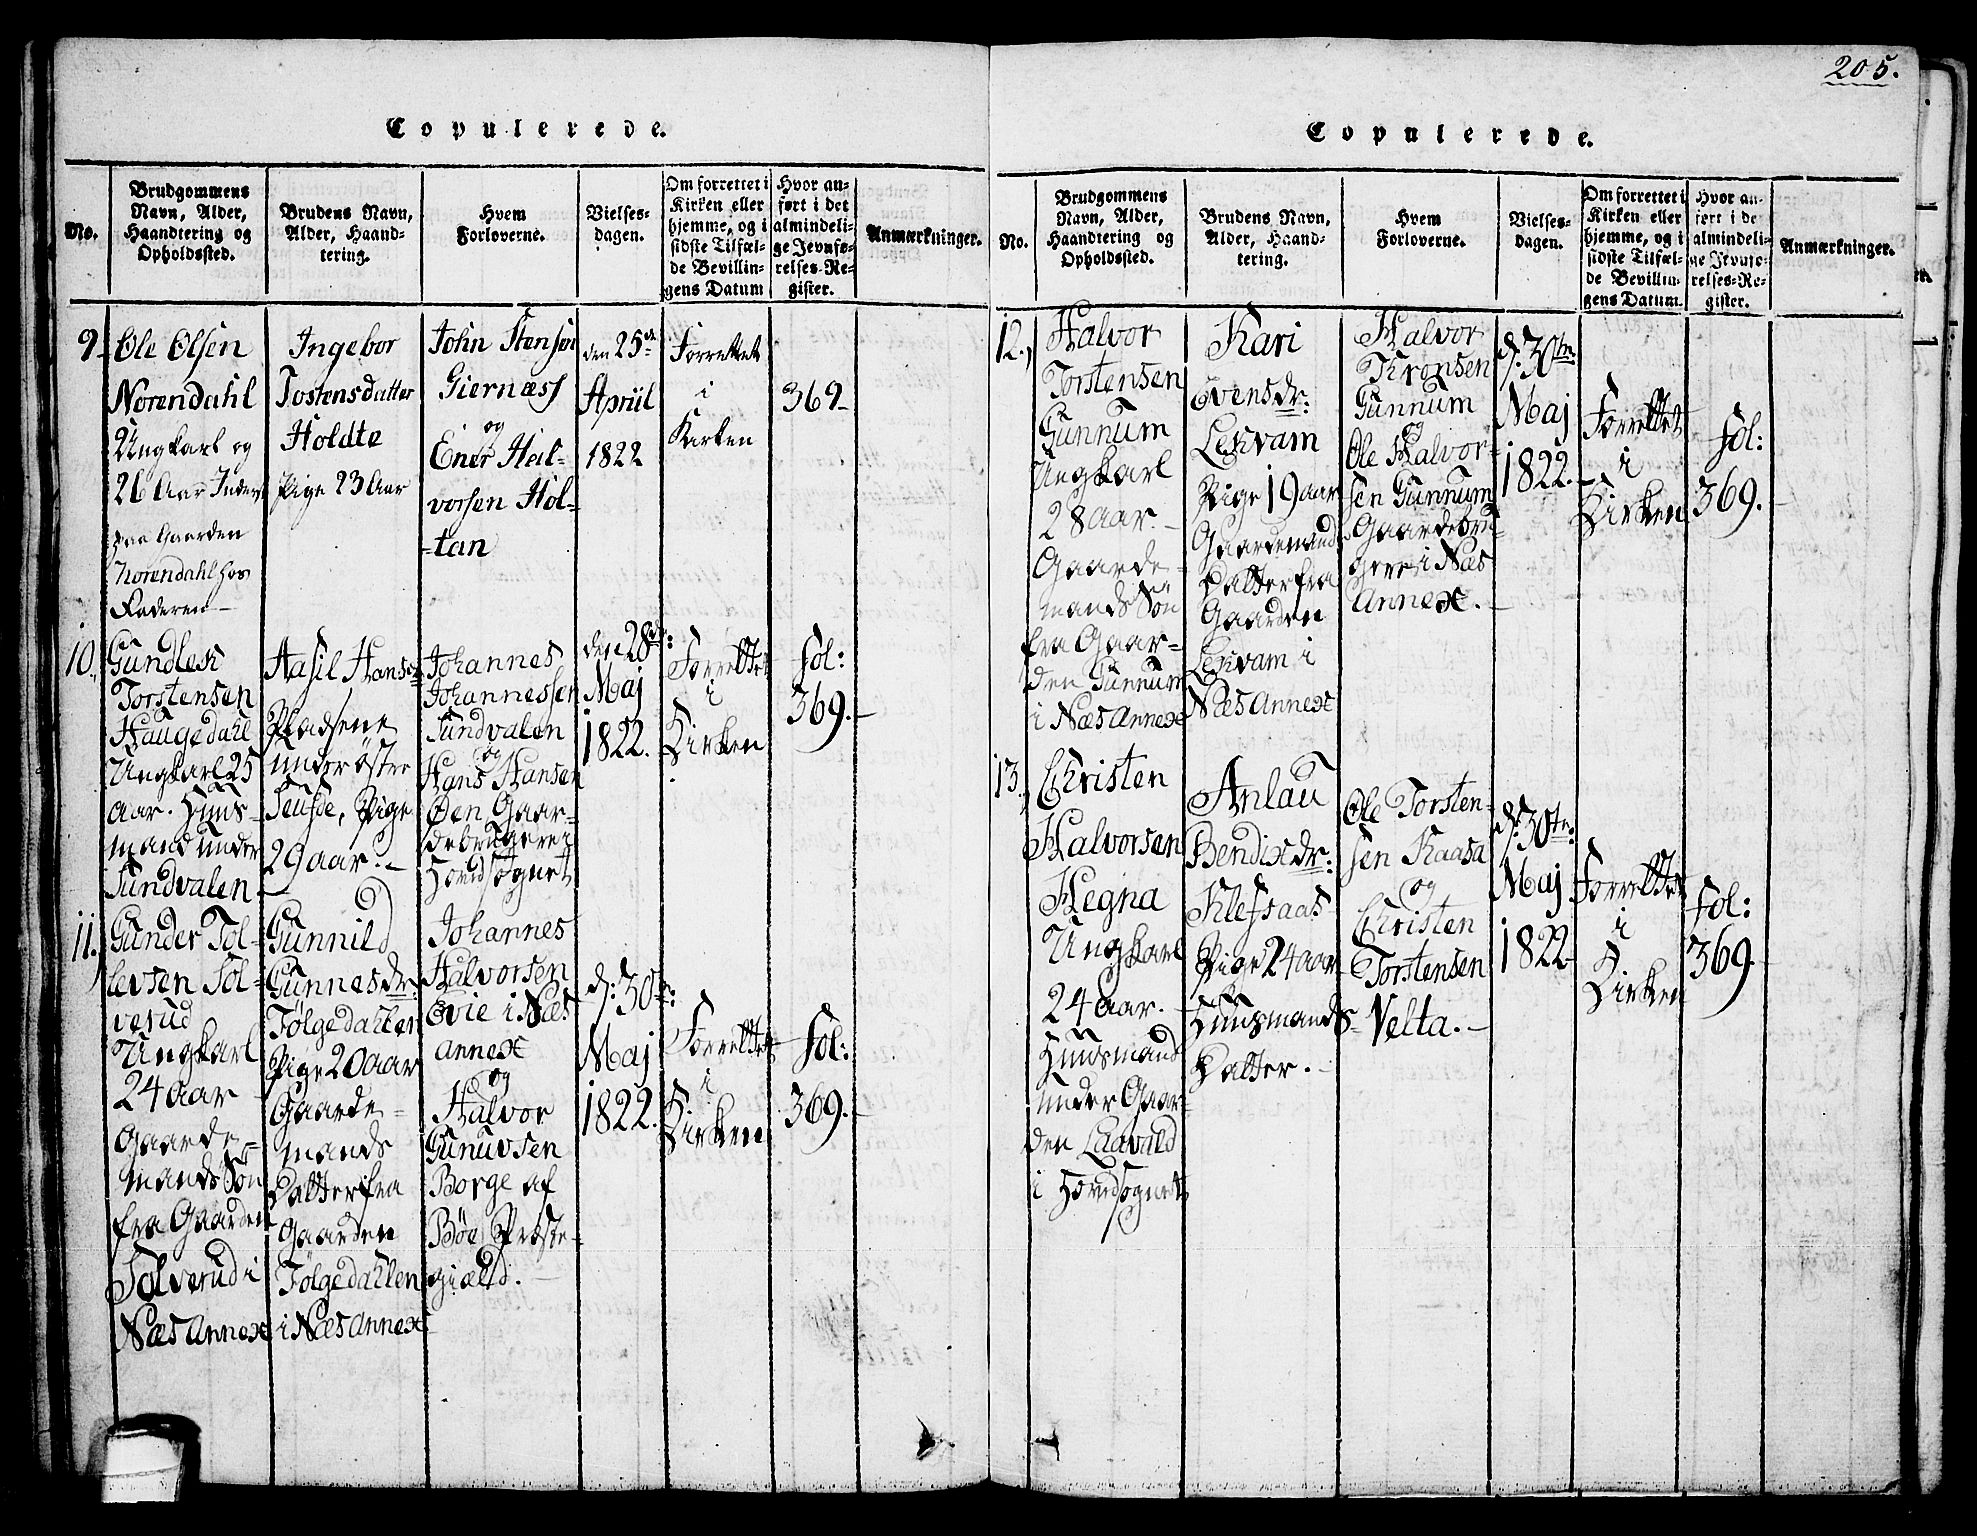 205.
Copulerede.
No.
Brudgommens
Navn, Alder,
Haandtering og
Opholdssted.
Brudens Navn,
Alder, Haand-
tering.
Hvem
Forloverne.
Vielses-
dagen.
Om forrettet i
Kirken eller
hjemme, og i
sidste Tilfæl-
de Bevillin-
gens Datum
Hvor an-
ført i det
almindeli-
ge Jevnfø-
relses-Re-
gister.
Anmærkninger.
9.
Ole Olsen
Norendahl
Ungkarl og
26 Aar Inderst
paa Gaarden
Norendahl hos
Faderen –
Ingebor
Tostensdatter
Holdte
Pige 23 Aar
John Stensen
Giernæss
og
Ener Hal-
vorsen Hol-
-tan
den 25de
Apriil
1822
Forrettet
i
Kirken
369–
10.
Gundlek
Torstensen
Haugedahl
Ungkarl 25
aar. Huus-
mand under
Sundvalen –
Aasil Hans
Pladsene
under Østre
Seusde, Pige
29 aar. –
Johannes
Johannessen
Sundvalen
og
Hans Hansen
Øen Gaar-
debrugere i
Hovedsognet
den 28de:
Maj
1822.
Forrettet
i
Kirken
Fol:
369. –
11.
Gunder Tol-
levsen Sol-
verud
Ungkarl
24 aar
Gaarde-
mands Søn
fra Gaarden
Solverud i
Næs Annex
Gunnild
Gunnesdr:
Følgedahlen
Pige 20 aar
Gaarde-
mands
Datter fra
Gaarden
Følgedahlen
i Næs Annex
Johannes
Halvorsen
Evie i Næs
annex
og
Halvor
Gunuvsen
Borge af
Bøe Præste-
gield. –
d: 30te:
Maj
1822.
Forrettet
i
Kirken
Fol:
369. –
Copulerede.
No.
Brudgommens
Navn, Alder,
Haandtering og
Opholdssted.
Brudens Navn,
Alder, Haand-
tering.
Hvem
Forloverne.
Vielses-
dagen.
Om forrettet i
Kirken eller
hjemme, og i
sidste Tilfæl-
de Bevillin-
gens Datum.
Hvor an-
ført i de
almindeli-
ge Jevnfø-
relses-Re-
gister.
Anmærkninger.
12.
Halvor
Torstensen
Gunnum
Ungkarl
28 aar. –
Gaarde-
mands Søn
fra Gaar-
den Gunnum
i Næs Annex
Kari
Evensdr:
Lekvam
Pige 19 aar
Gaardemands
Datter fra
Gaarden
Lekvam i
Næs Annex
Halvor
Kronsen
Gunnum
og
Ole Halvor-
sen Gunnum
Gaardebru-
gere i Næs
Annex. –
d: 30te:
Maj
1822. –
Forrettet
i
Kirken
Fol:
369. –
13.
Christen
Halvorsen
Hegna
Ungkarl
24 aar. –
Huusmand
under Gaar-
den Laavald
i Hovedsognet
Anlau
Bendixdr:
Klefsaas
Pige 24 aar
Huusmands-
Datter. –
Ole Torsten-
sen Kaasa
og
Christen
Torstensen
Velta. –
d: 30te:
Maj
1822
Forrettet
i
Kirken
Fol:
369. –